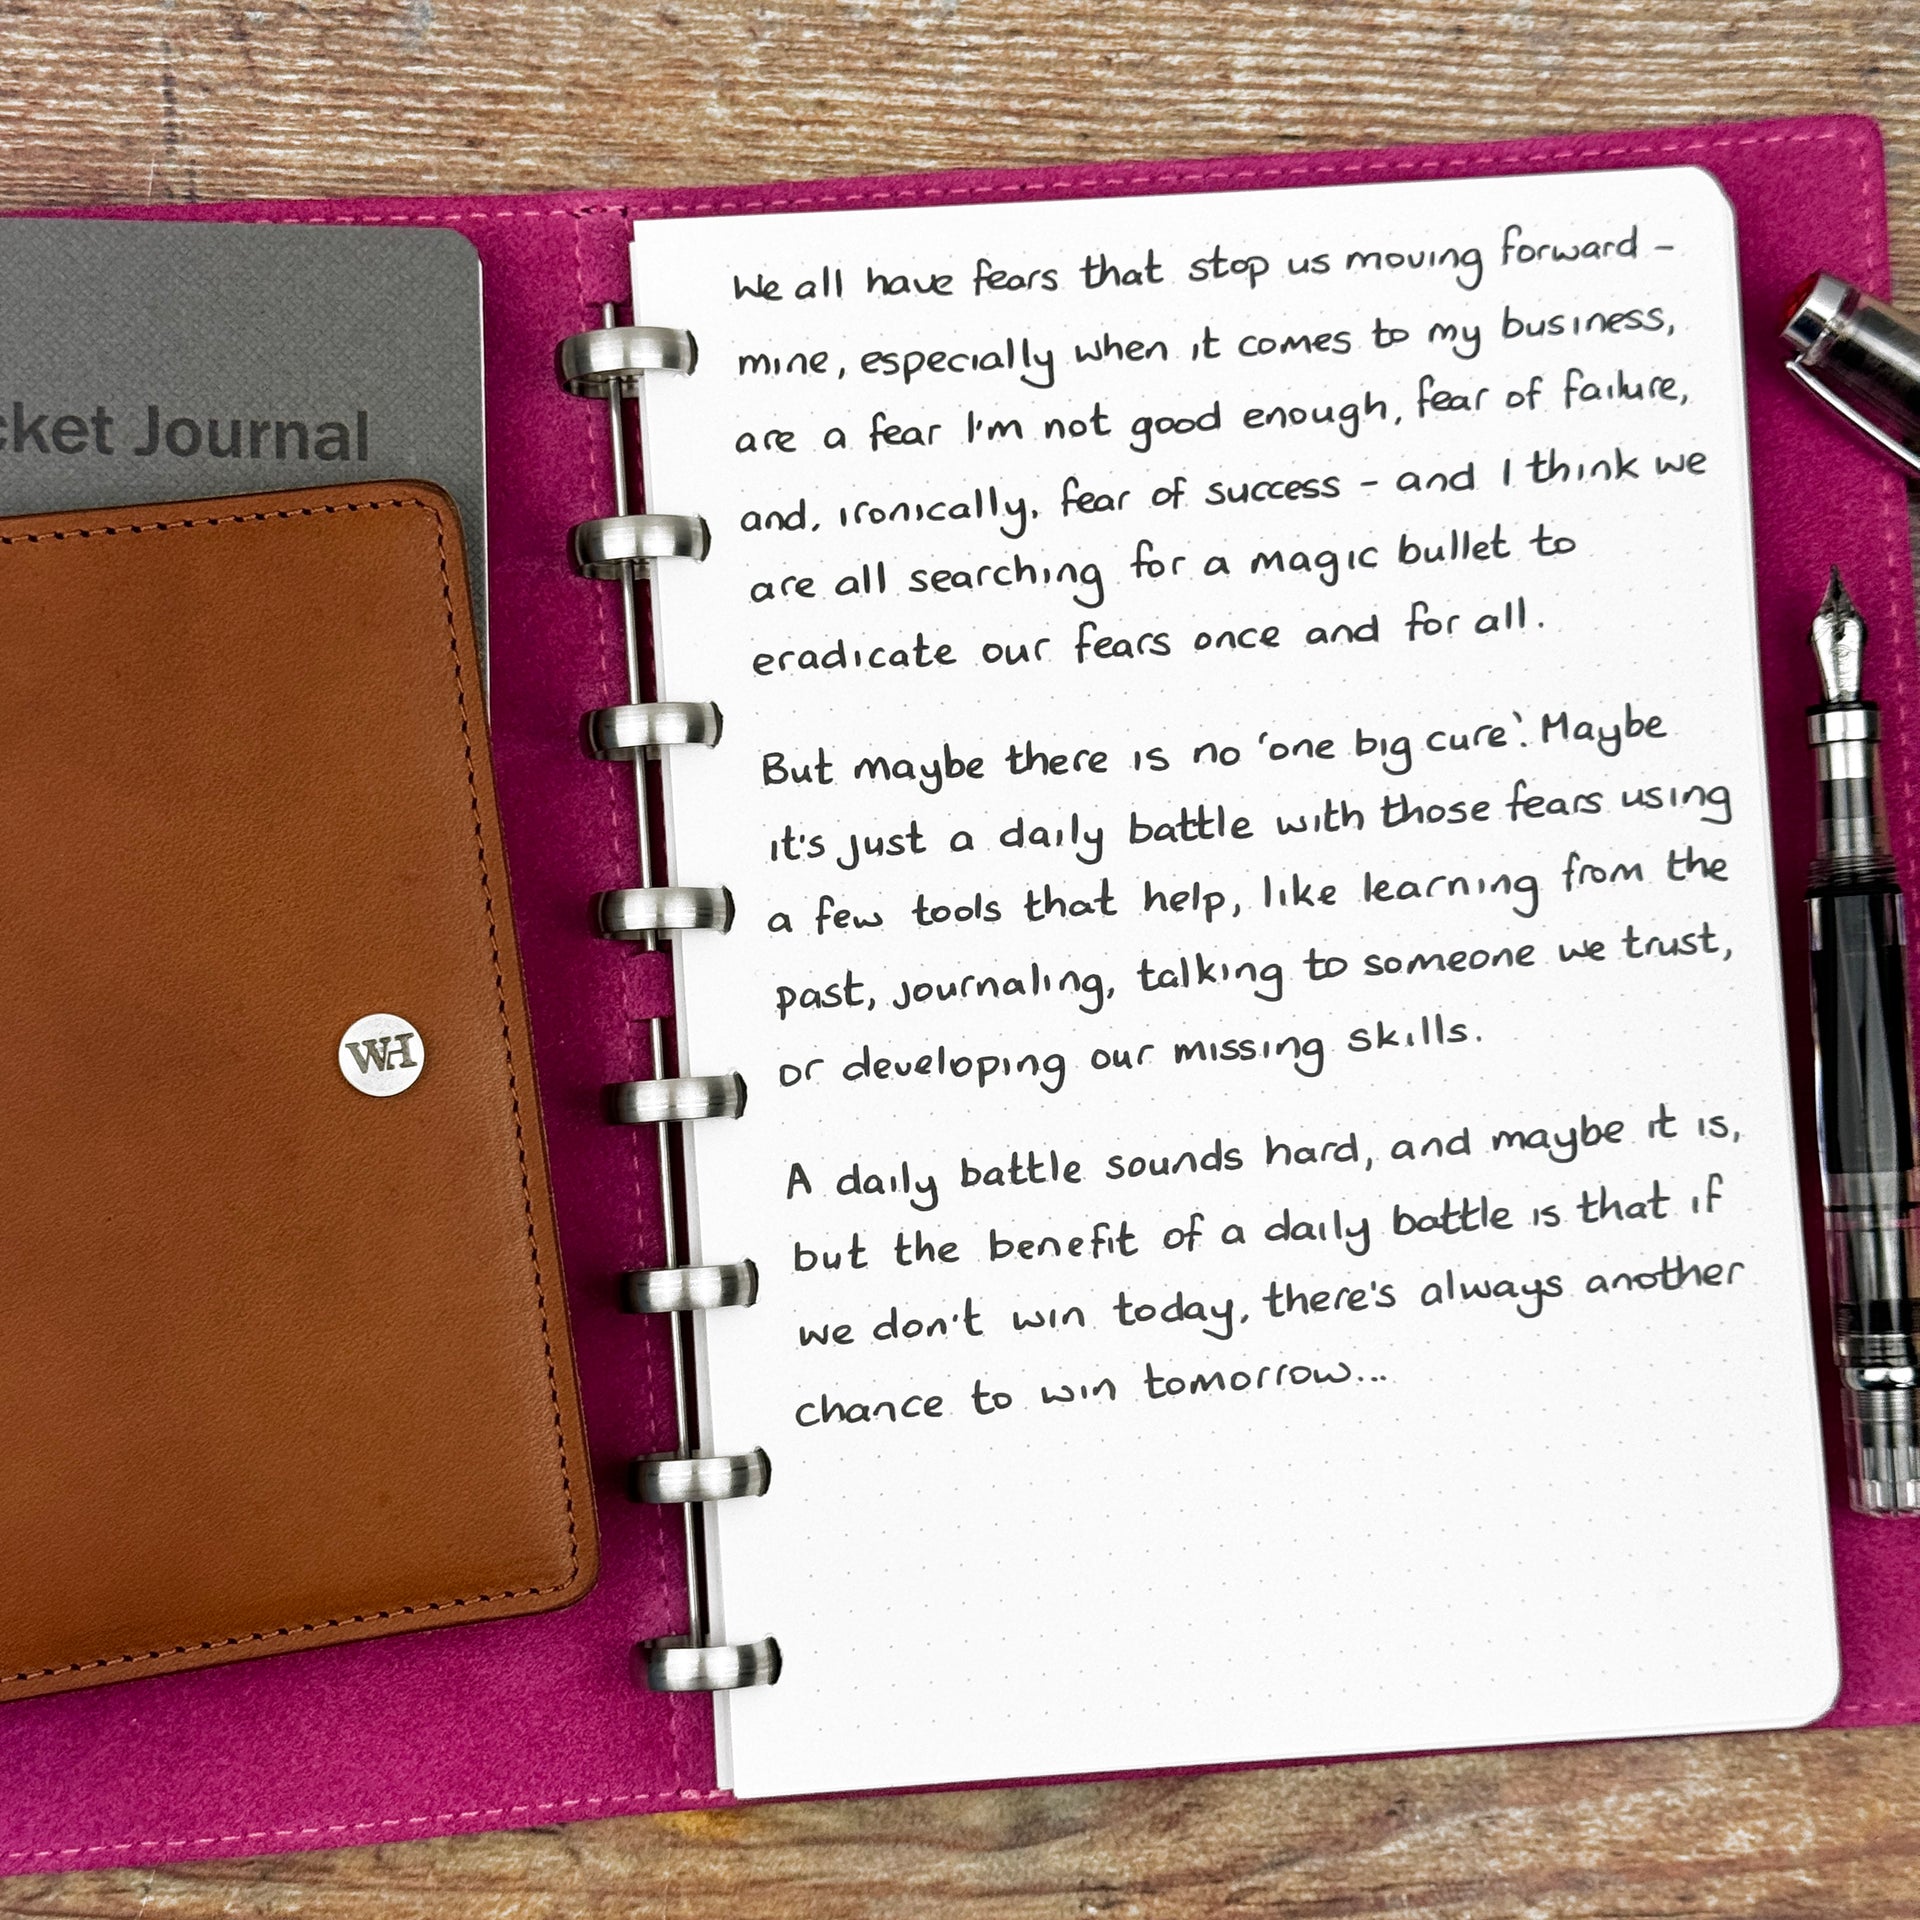 cket Journal
WH
We all have fears that stop us moving forward -
mine, especially when it comes to my business,
are a fear I'm not good enough, fear of failure,
and, ironically, fear of success - and I think we
are all searching for a magic bullet to
eradicate our fears once and for all.
But maybe there is no 'one big cure'. Maybe
it's just a daily battle with those fears using
a few tools that help, like learning from the
past, journaling, talking to someone we trust,
or developing our missing skills.
A daily battle sounds hard, and maybe it is,
but the benefit of a daily battle is that if
we don't win today, there's always another
chance to win tomorrow...